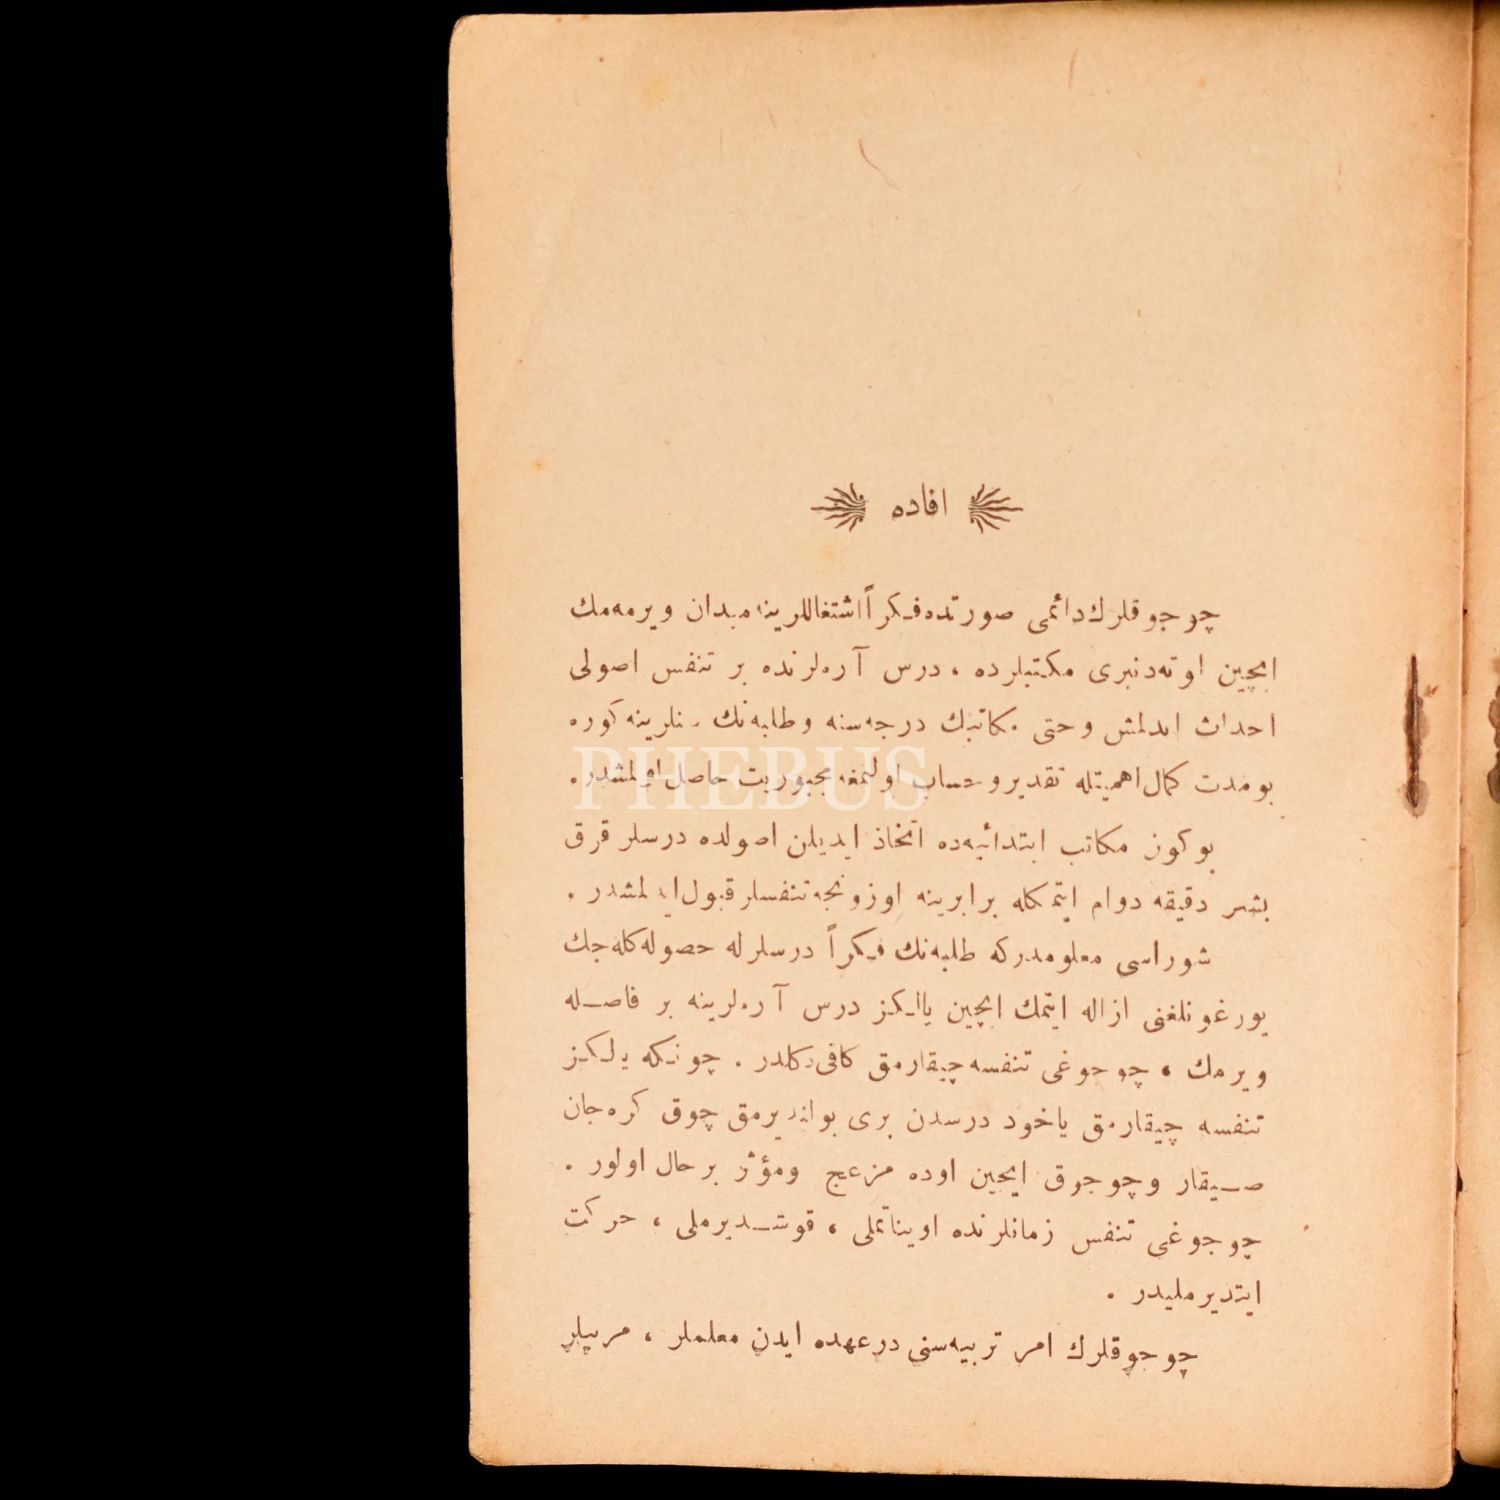 افاده
چوجوقلرك دائمی صورتده فكراً اشتغاللرینه میدان ویرمه‌مك
ایچین اوته‌دنبری مكتبلرده ، درس آره‌لرنده بر تنفس اصولی
احداث ایدلمش وحتی مكاتبك درجه‌سنه وطلبه‌نك سنلرینه كوره
بومدت كمال اهمیتله تقدیر وحساب اولنمغه مجبوریت حاصل اولمشدر.
بوكون مكاتب ابتدائیه‌ده اتخاذ ایدیلن اصولده درسلر قرق
بشر دقیقه دوام ایتمكله برابرینه اوزونجه تنفسلر قبول ایدلمشدر .
شوراسی معلومدركه طلبه‌نك فكراً درسلرله حصوله كله‌جك
یورغونلغنی ازاله ایتمك ایچین یالكز درس آره‌لرینه بر فاصله
ویرمك ، چوجوغی تنفسه چیقارمق كافی دكلدر . چونكه یالكز
تنفسه چیقارمق یاخود درسدن بری بولندیرمق چوق كره جان
صیقار وچوجوق ایچین اوده مزعج ومؤثر بر حال اولور .
چوجوغی تنفس زمانلرنده اویناتملی ، قوشدیرملی ، حركت
ایتدیرملیدر .
چوجوقلرك امر تربیه‌سنی درعهده ایدن معلملر ، مربیلر
PHEBUS